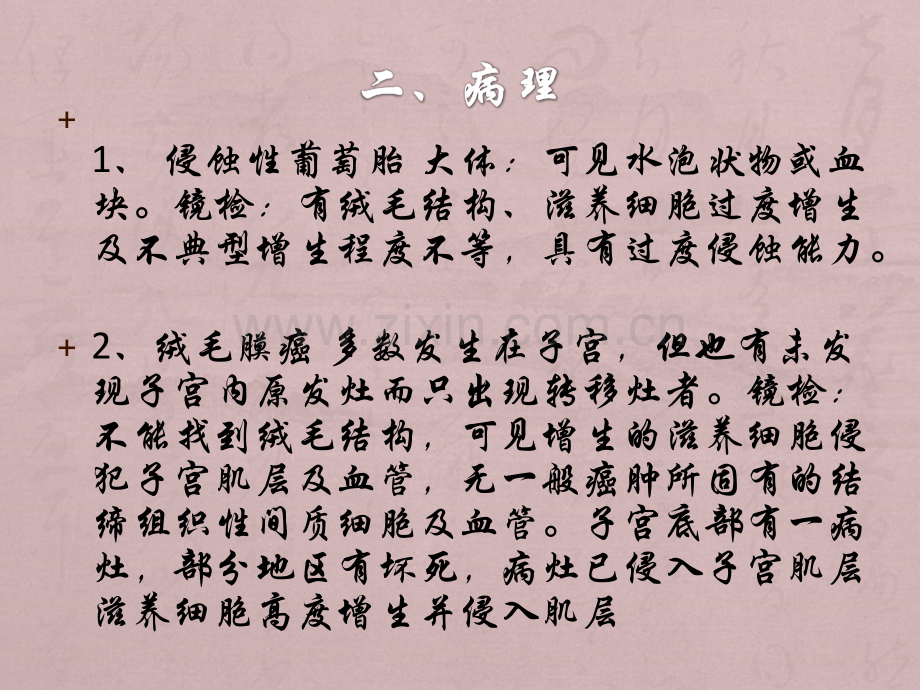 二、病理
1、 侵蚀性葡萄胎 大体：可见水泡状物或血
块。镜检：有绒毛结构、滋养细胞过度增生
及不典型增生程度不等，具有过度侵蚀能力。
2、绒毛膜癌 多数发生在子宫，但也有未发
现子宫内原发灶而只出现转移灶者。镜检：
不能找到绒毛结构，可见增生的滋养细胞侵
犯子宫肌层及血管，无一般癌肿所固有的结
缔组织性间质细胞及血管。子宫底部有一病
灶，部分地区有坏死，病灶已侵入子宫肌层
滋养细胞高度增生并侵入肌层
www.zixin.com.cn